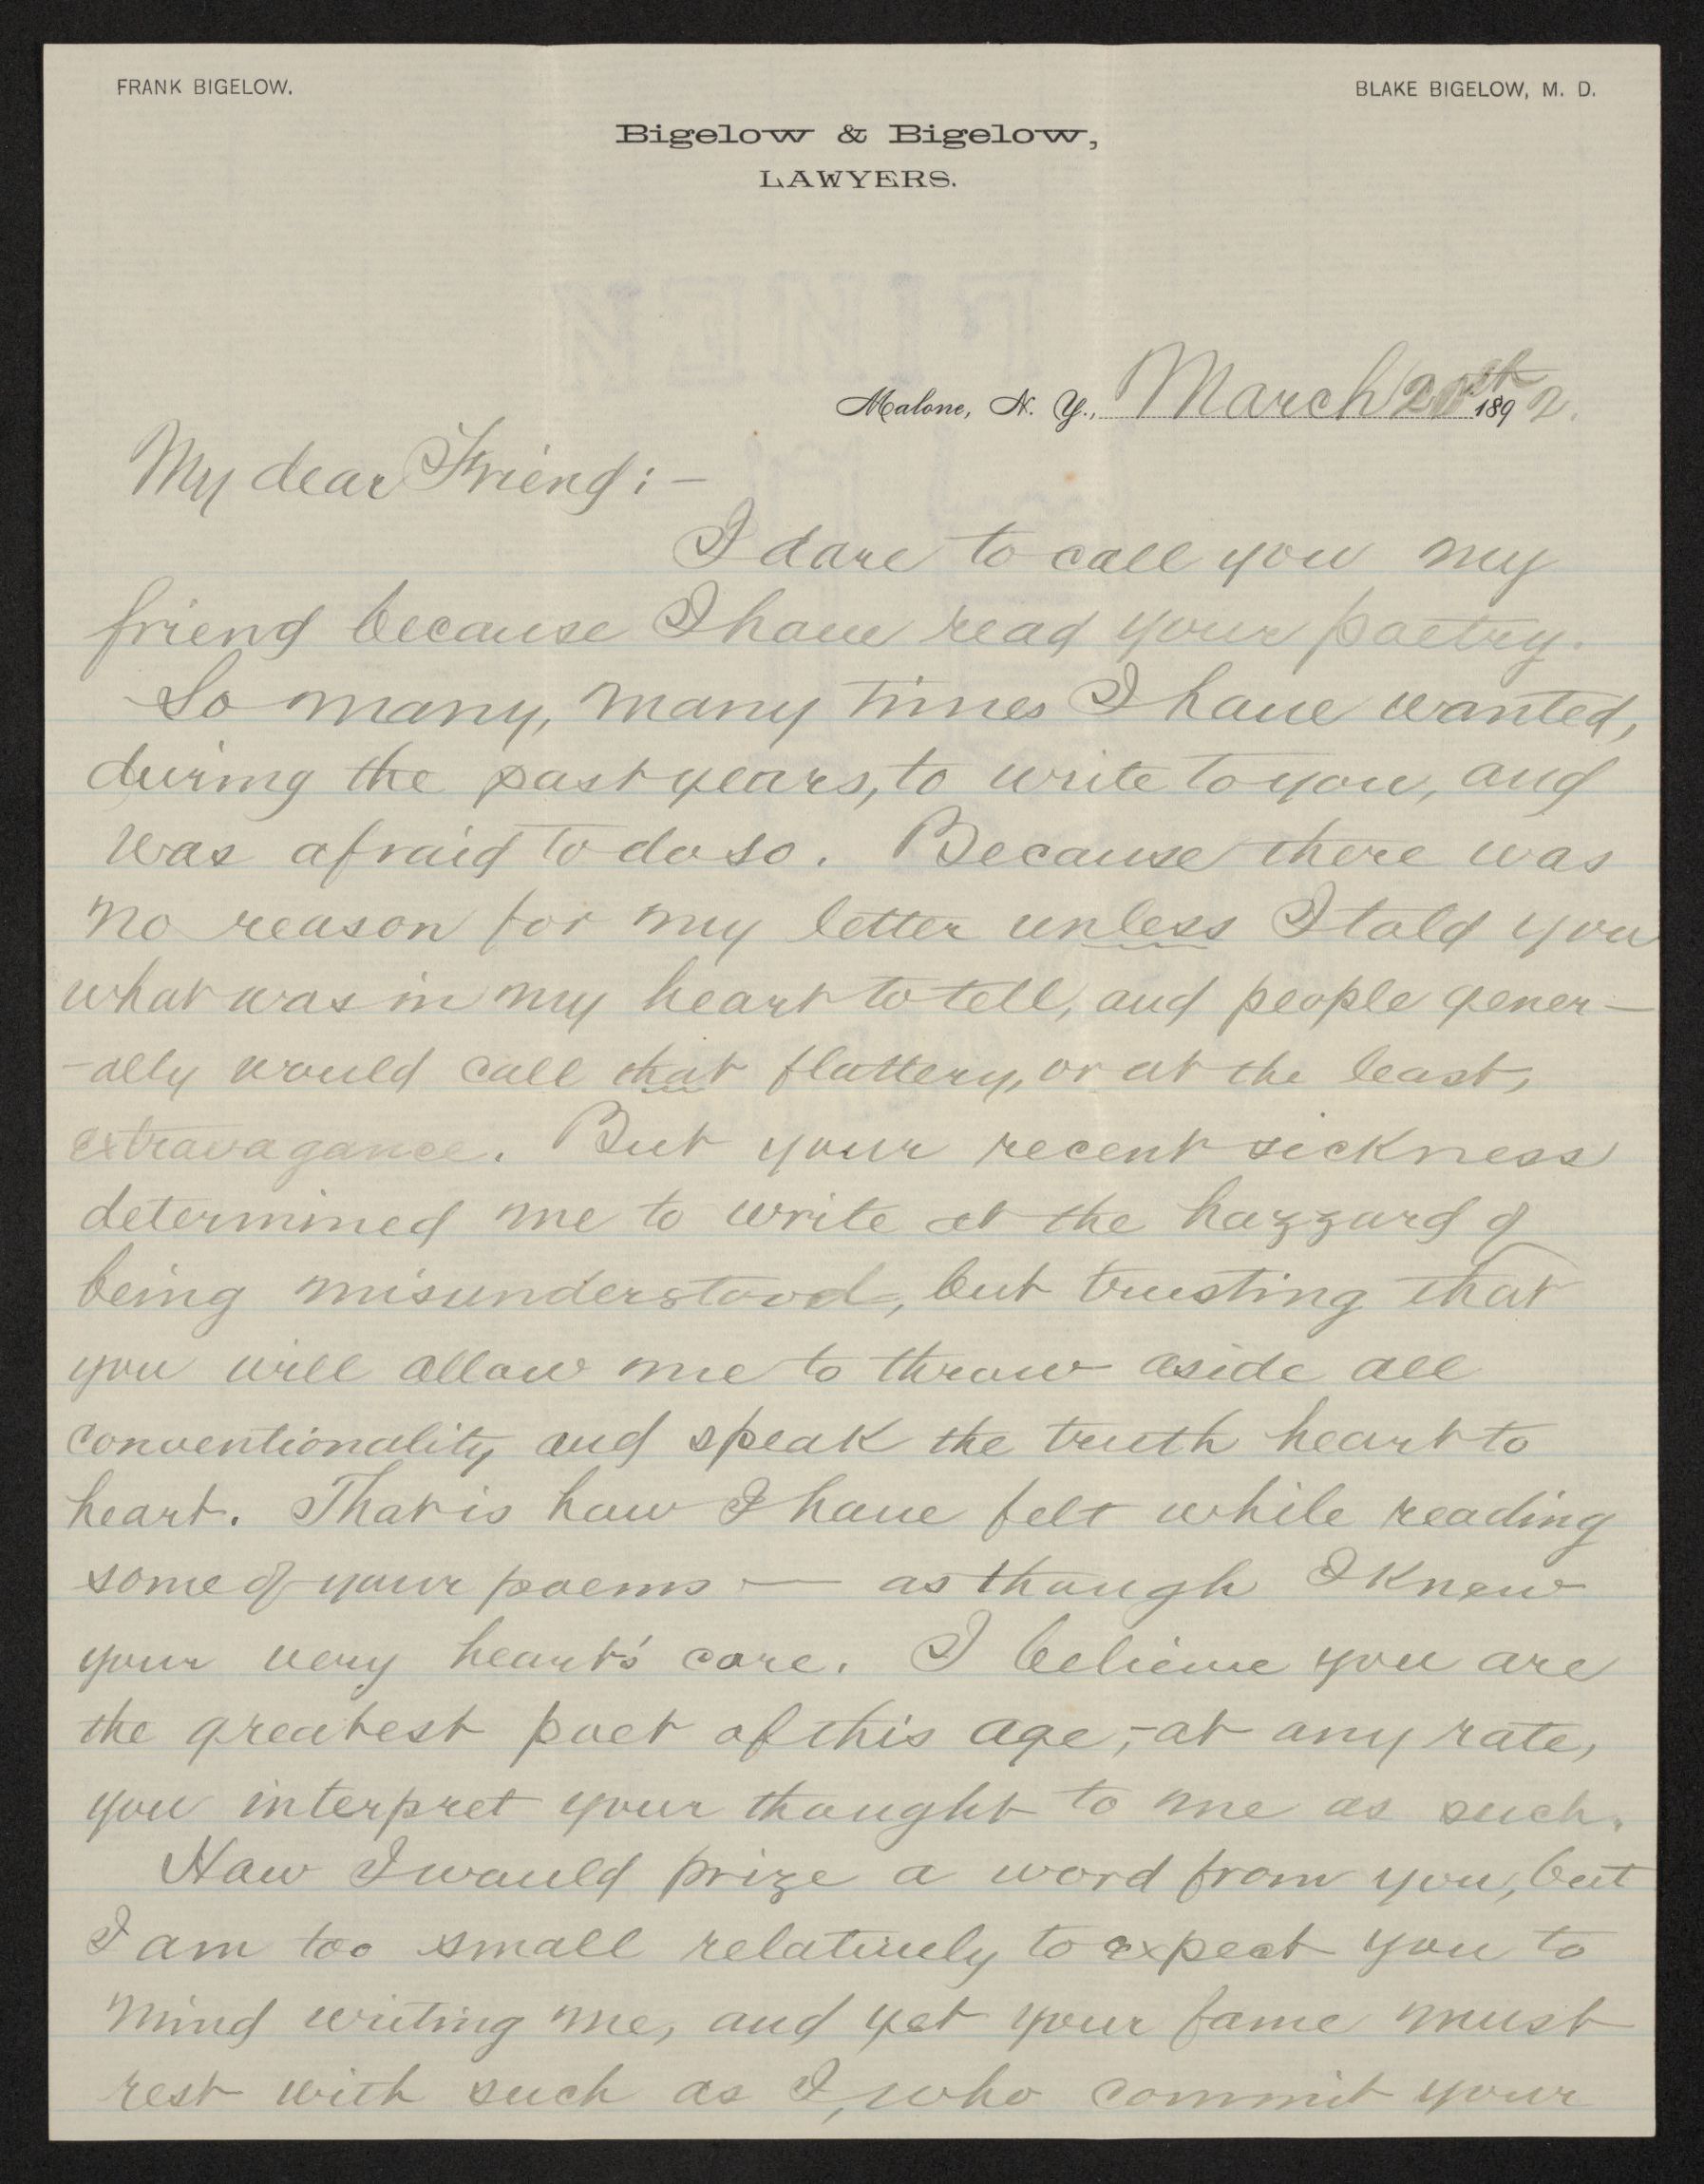 FRANK BIGELOW.
BLAKE BIGELOW, M. D.
Bigelow & Bigelow,
LAWYERS.
Malone, N. Y., March 189 2.
My dear Friend; —
I dare to call you my
friend because I have read your poetry.
So many, many times I have wanted,
during the past years, to write to you, and
was afraid to do so. Because there was
no reason for my letter unless I told you
what was in my heart to tell, and people gener—
-ally would call that flattery, or at the least,
extravagance. But your recent sickness
determined me to write at the hazzard of
being misunderstood, but trusting that
you will allow me to throw aside all
conventionality and speak the truth heart to
heart. That is how I have felt while reading
some of your poems — as though I knew
your very heart's core. I believe you are
the greatest poet of this age, - at any rate,
you interpret your thought to me as such.
Now I would prize a word from you, but
I am too small relatively to expect you to
mind writing me, and yet your fame must
rest with such as I, who commit your